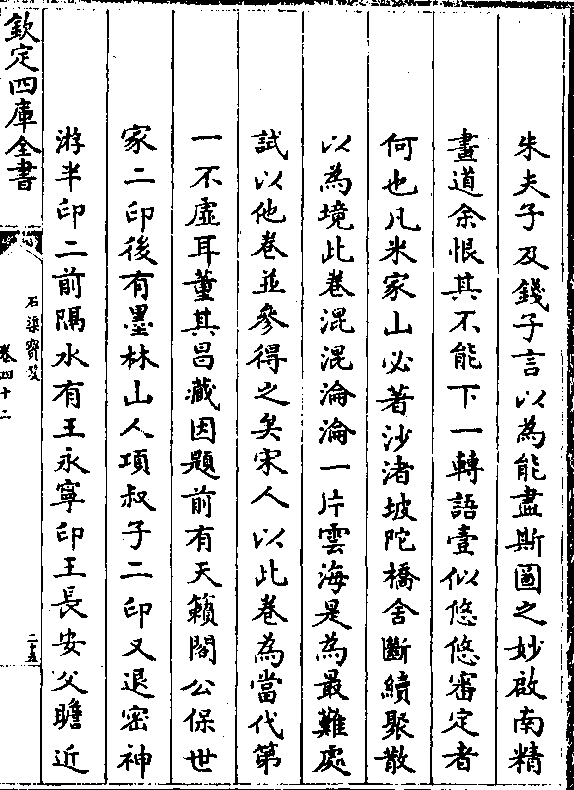 朱夫子及錢子言以為能盡斯圖之妙啟南精
畫道余恨其不能下一轉語壹似悠悠審定者
何也凡米家山必著沙渚坡陀橋舍斷續聚散
以為境此卷混混淪淪一片雲海是為最難處
試以他卷並參得之矣宋人以此卷為當代第
一不虛耳董其昌藏因題前有天籟閣公保世
家二印後有墨林山人項叔子二印又退密神
游半印二前隔水有王永寧印王長安父瞻近
欽定四庫全書
石渠寶笈
卷四十二
二十五